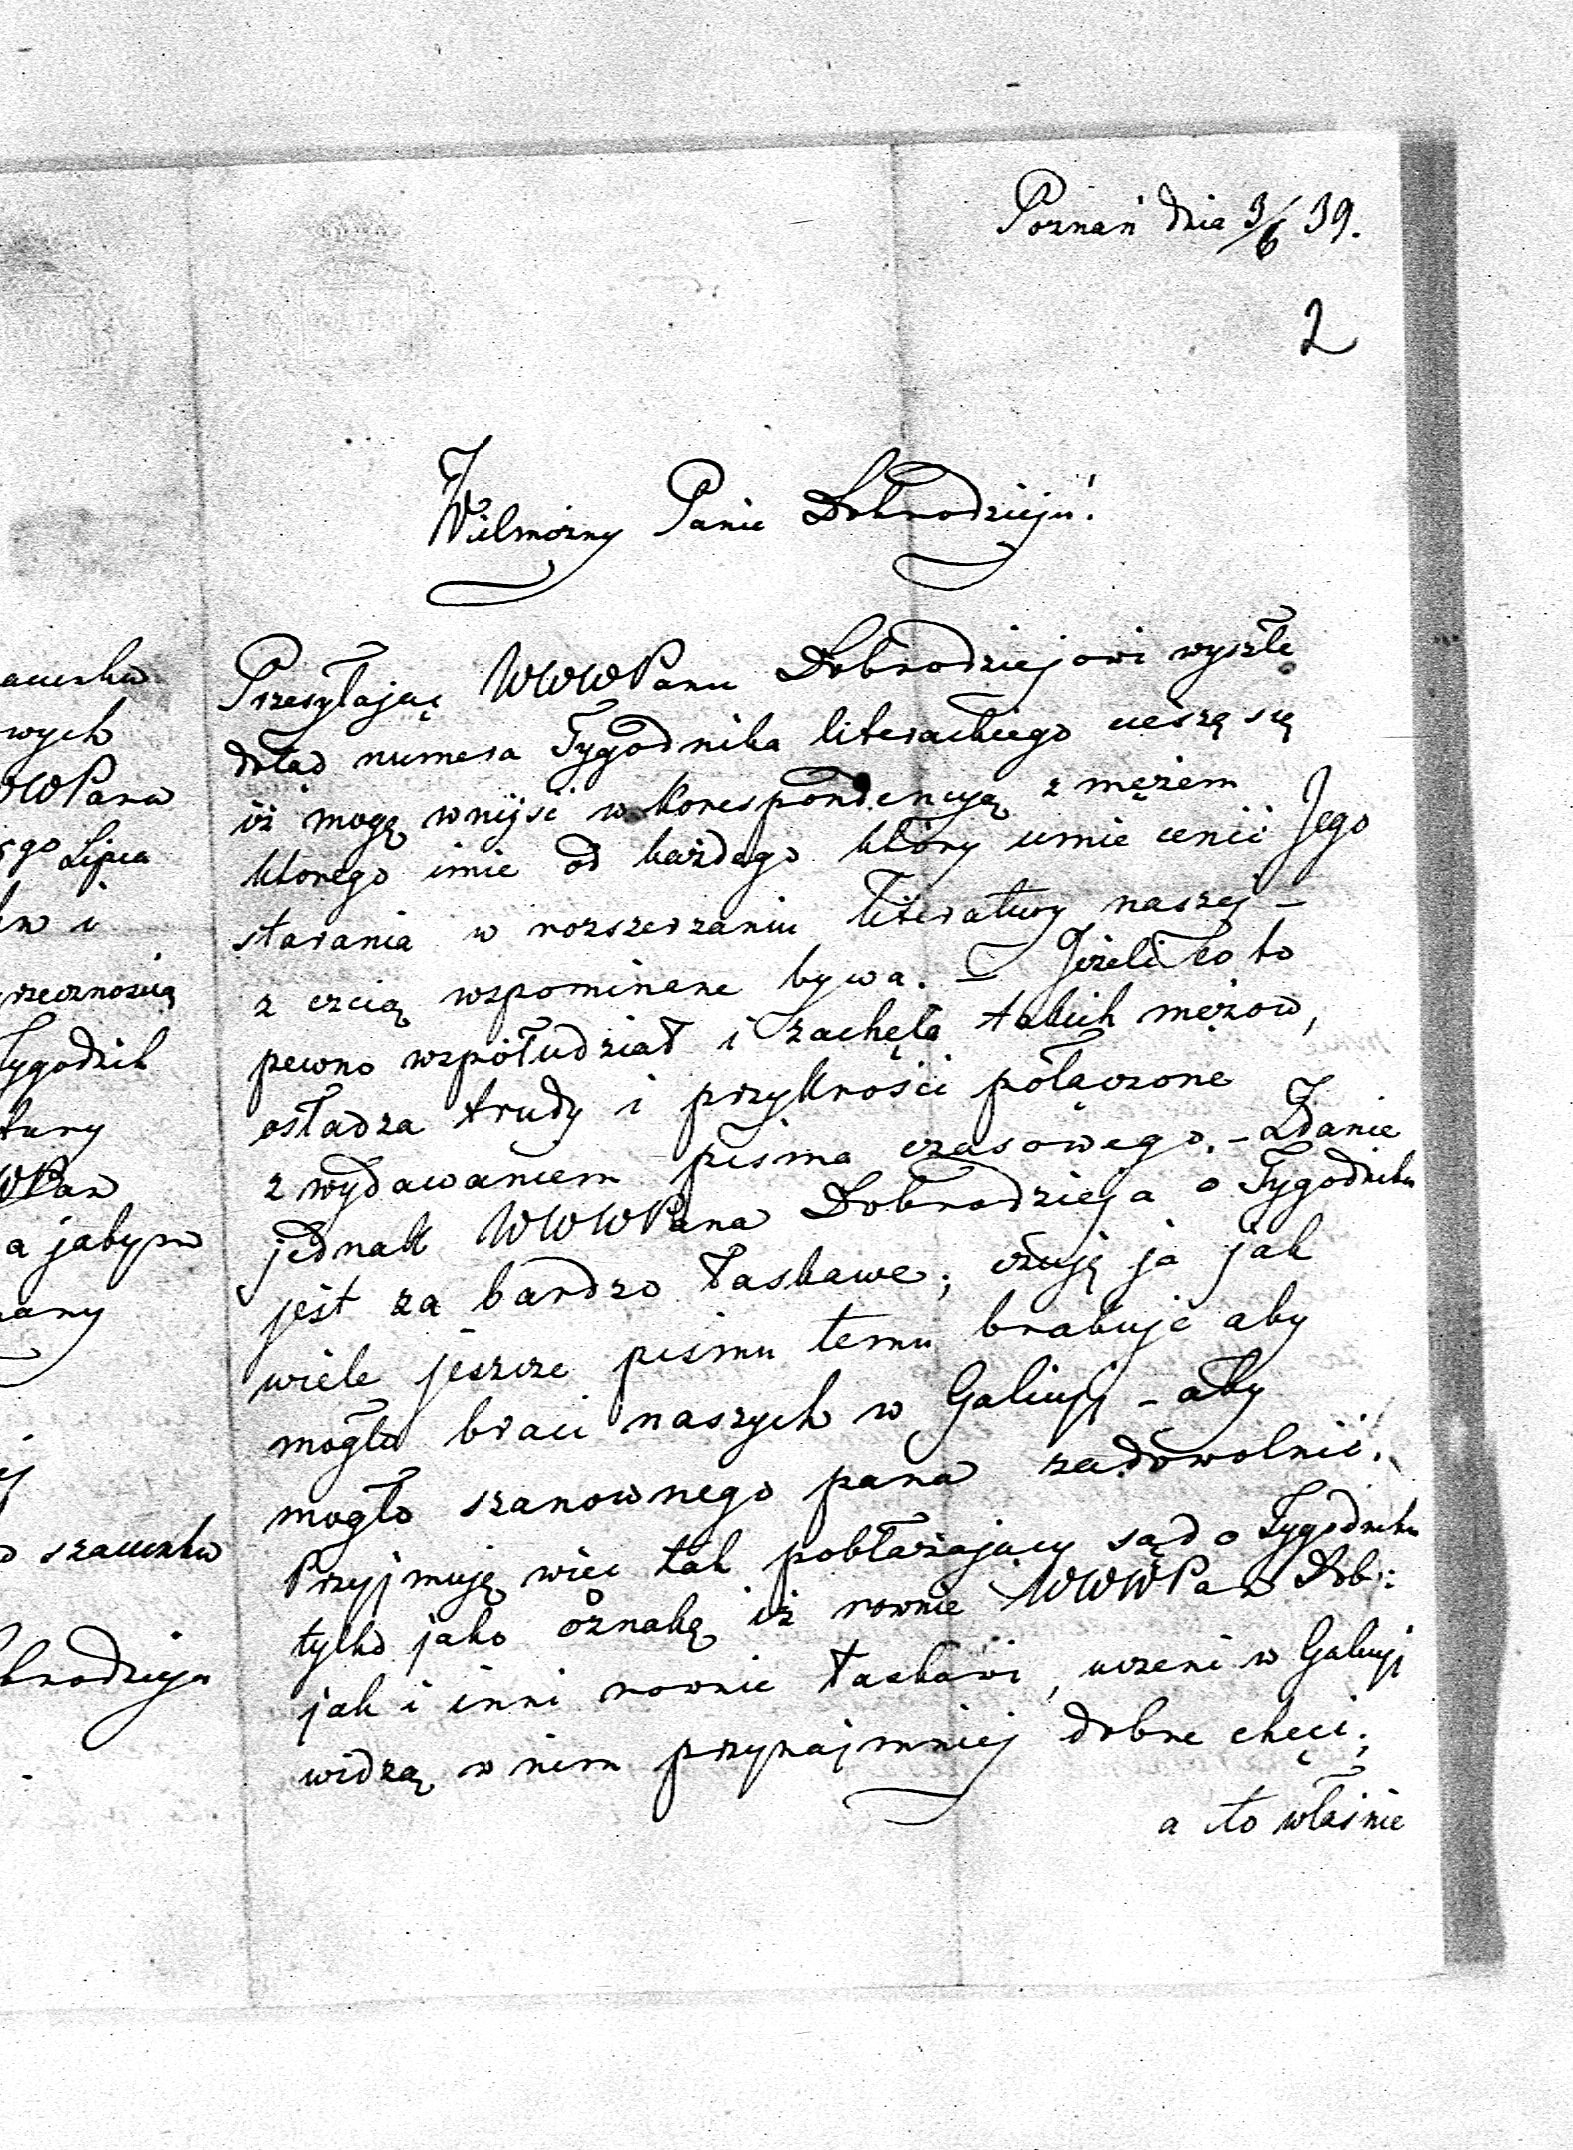 Poznań dnia 3/6 39.
2
Wielmożny Panie Dobrodzieju!
Przesyłając WWWPanu Dobrodziejowi wyszłe
dotąd numera Tygodnika literackiego cieszę się
iż mogę wnijść w korrespondencyą z mężem
ktorego imie od każdego który umie cenić Jego
starania w rozszerzaniu literatury naszej –
z czcią wspominane bywa. – Jeżeli co to
pewno współudział i zachęta takich mężow,
osładza trudy i przykrości połączone
z wydawaniem pisma czasowego. – Zdanie
jednak WWWPana Dobrodzieja o Tygodniku
jest za bardzo łaskawe; czuję ja jak
wiele jeszcze pismu temu brakuje aby
mogło braci naszych w Galicyi – aby
mogło szanownego pana zadowolnić.
Przyjmuję więc tak pobłażający sąd o Tygodniku
tylko jako oznakę iż rownie WWWPan Dob:
jak i inni rownie łaskawi, uczeni w Galicyi
widzą w nim przynajmniej dobre chęci;
a to właśnie
wych
WPana
Lipca
i
Tygodnik
WPan
a jabym
szacunku